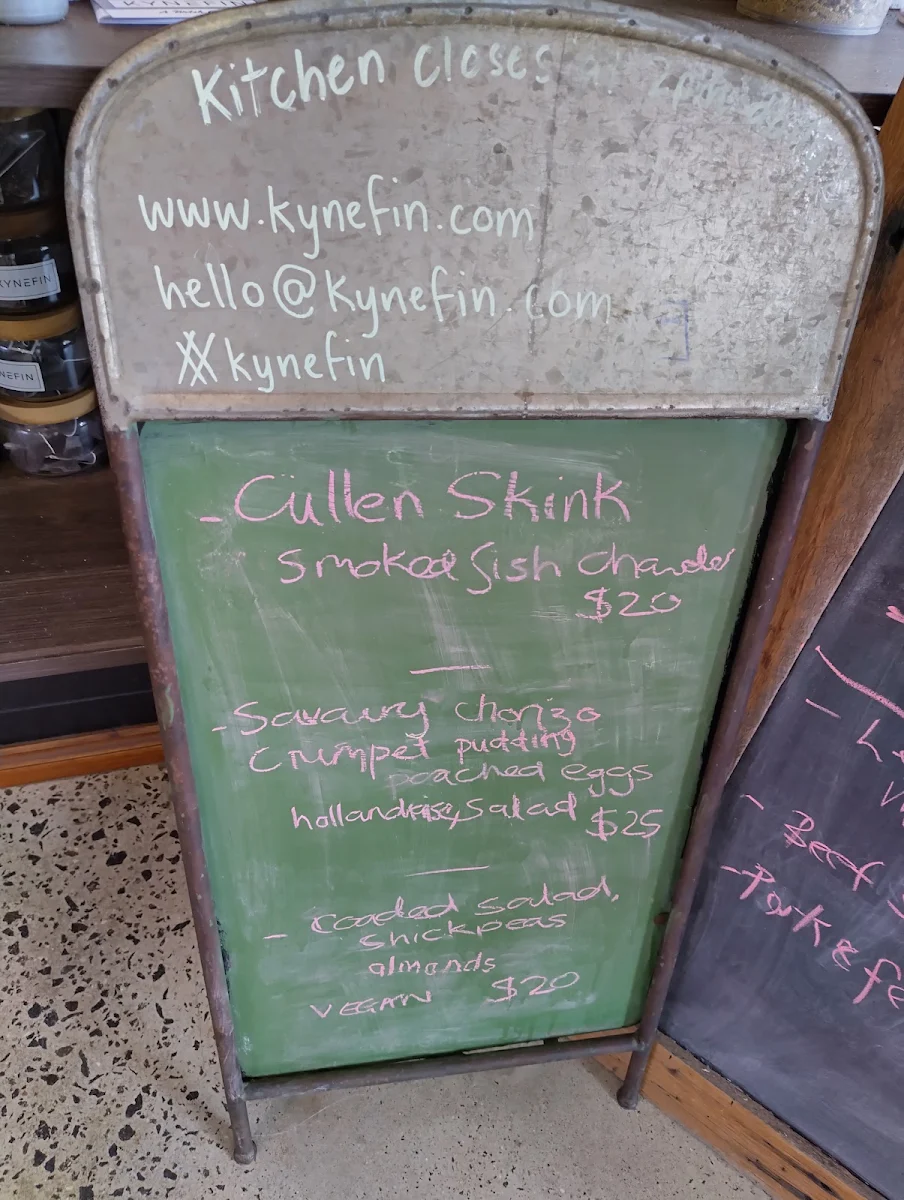 KYNEFIN
Kitchen closes at
www.kynefin.com
hello@kynefin.com
kynefin
KYNEFIN
NEFIN
- Cullen Skink
Smoked fish chowder
$20
- Savoury chorizo
Crumpet pudding
poached eggs
hollandaise, salad $25
- Loaded salad,
chickpeas
almonds
VEGAN $20
Beef
- Pork & fe